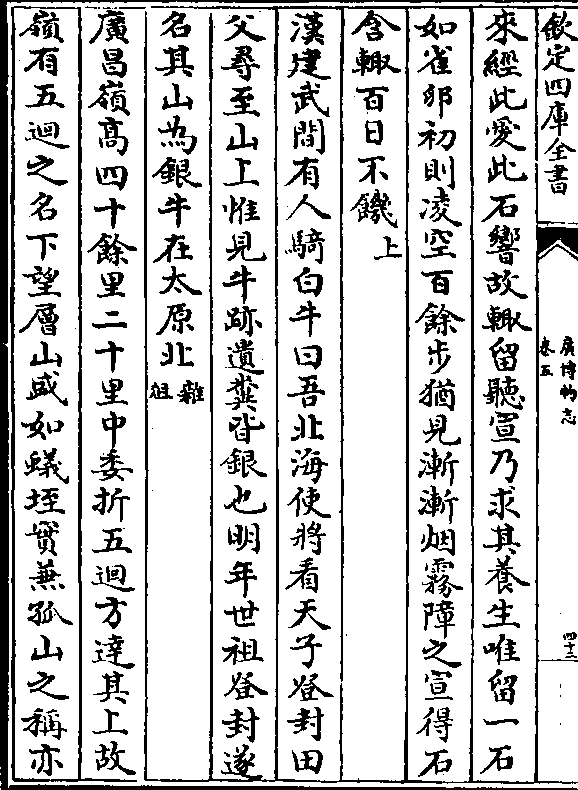 欽定四庫全書
廣博物志
卷五
四十三
來經此愛此石響故輙留聽宣乃求其養生唯留一石
如雀卵初則凌空百餘步猶見漸漸烟霧障之宣得石
含輙百日不饑上
漢建武間有人騎白牛曰吾北海使將看天子登封田
父尋至山上惟見牛跡遺糞皆銀也明年世祖登封遂
名其山為銀牛在太原北雜俎
廣昌嶺高四十餘里二十里中委折五迴方達其上故
嶺有五迴之名下望層山盛如蟻垤實兼孤山之稱亦